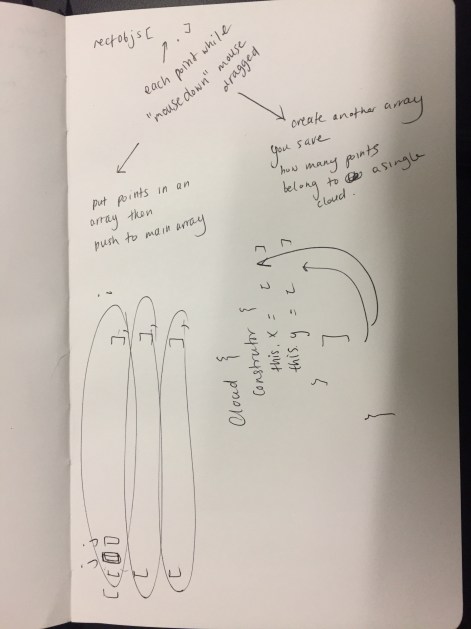 rectobjs[ . ]
each point while
"mouse down" mouse
dragged
put points in an
array then
push to main array
create another array
you save
how many points
belong to a single
cloud.
cloud {
constructor {
this.x = [ ]
this.y = [ ]
}
]
}
[ [ [ ] ],
[ ],
[ ],
i j